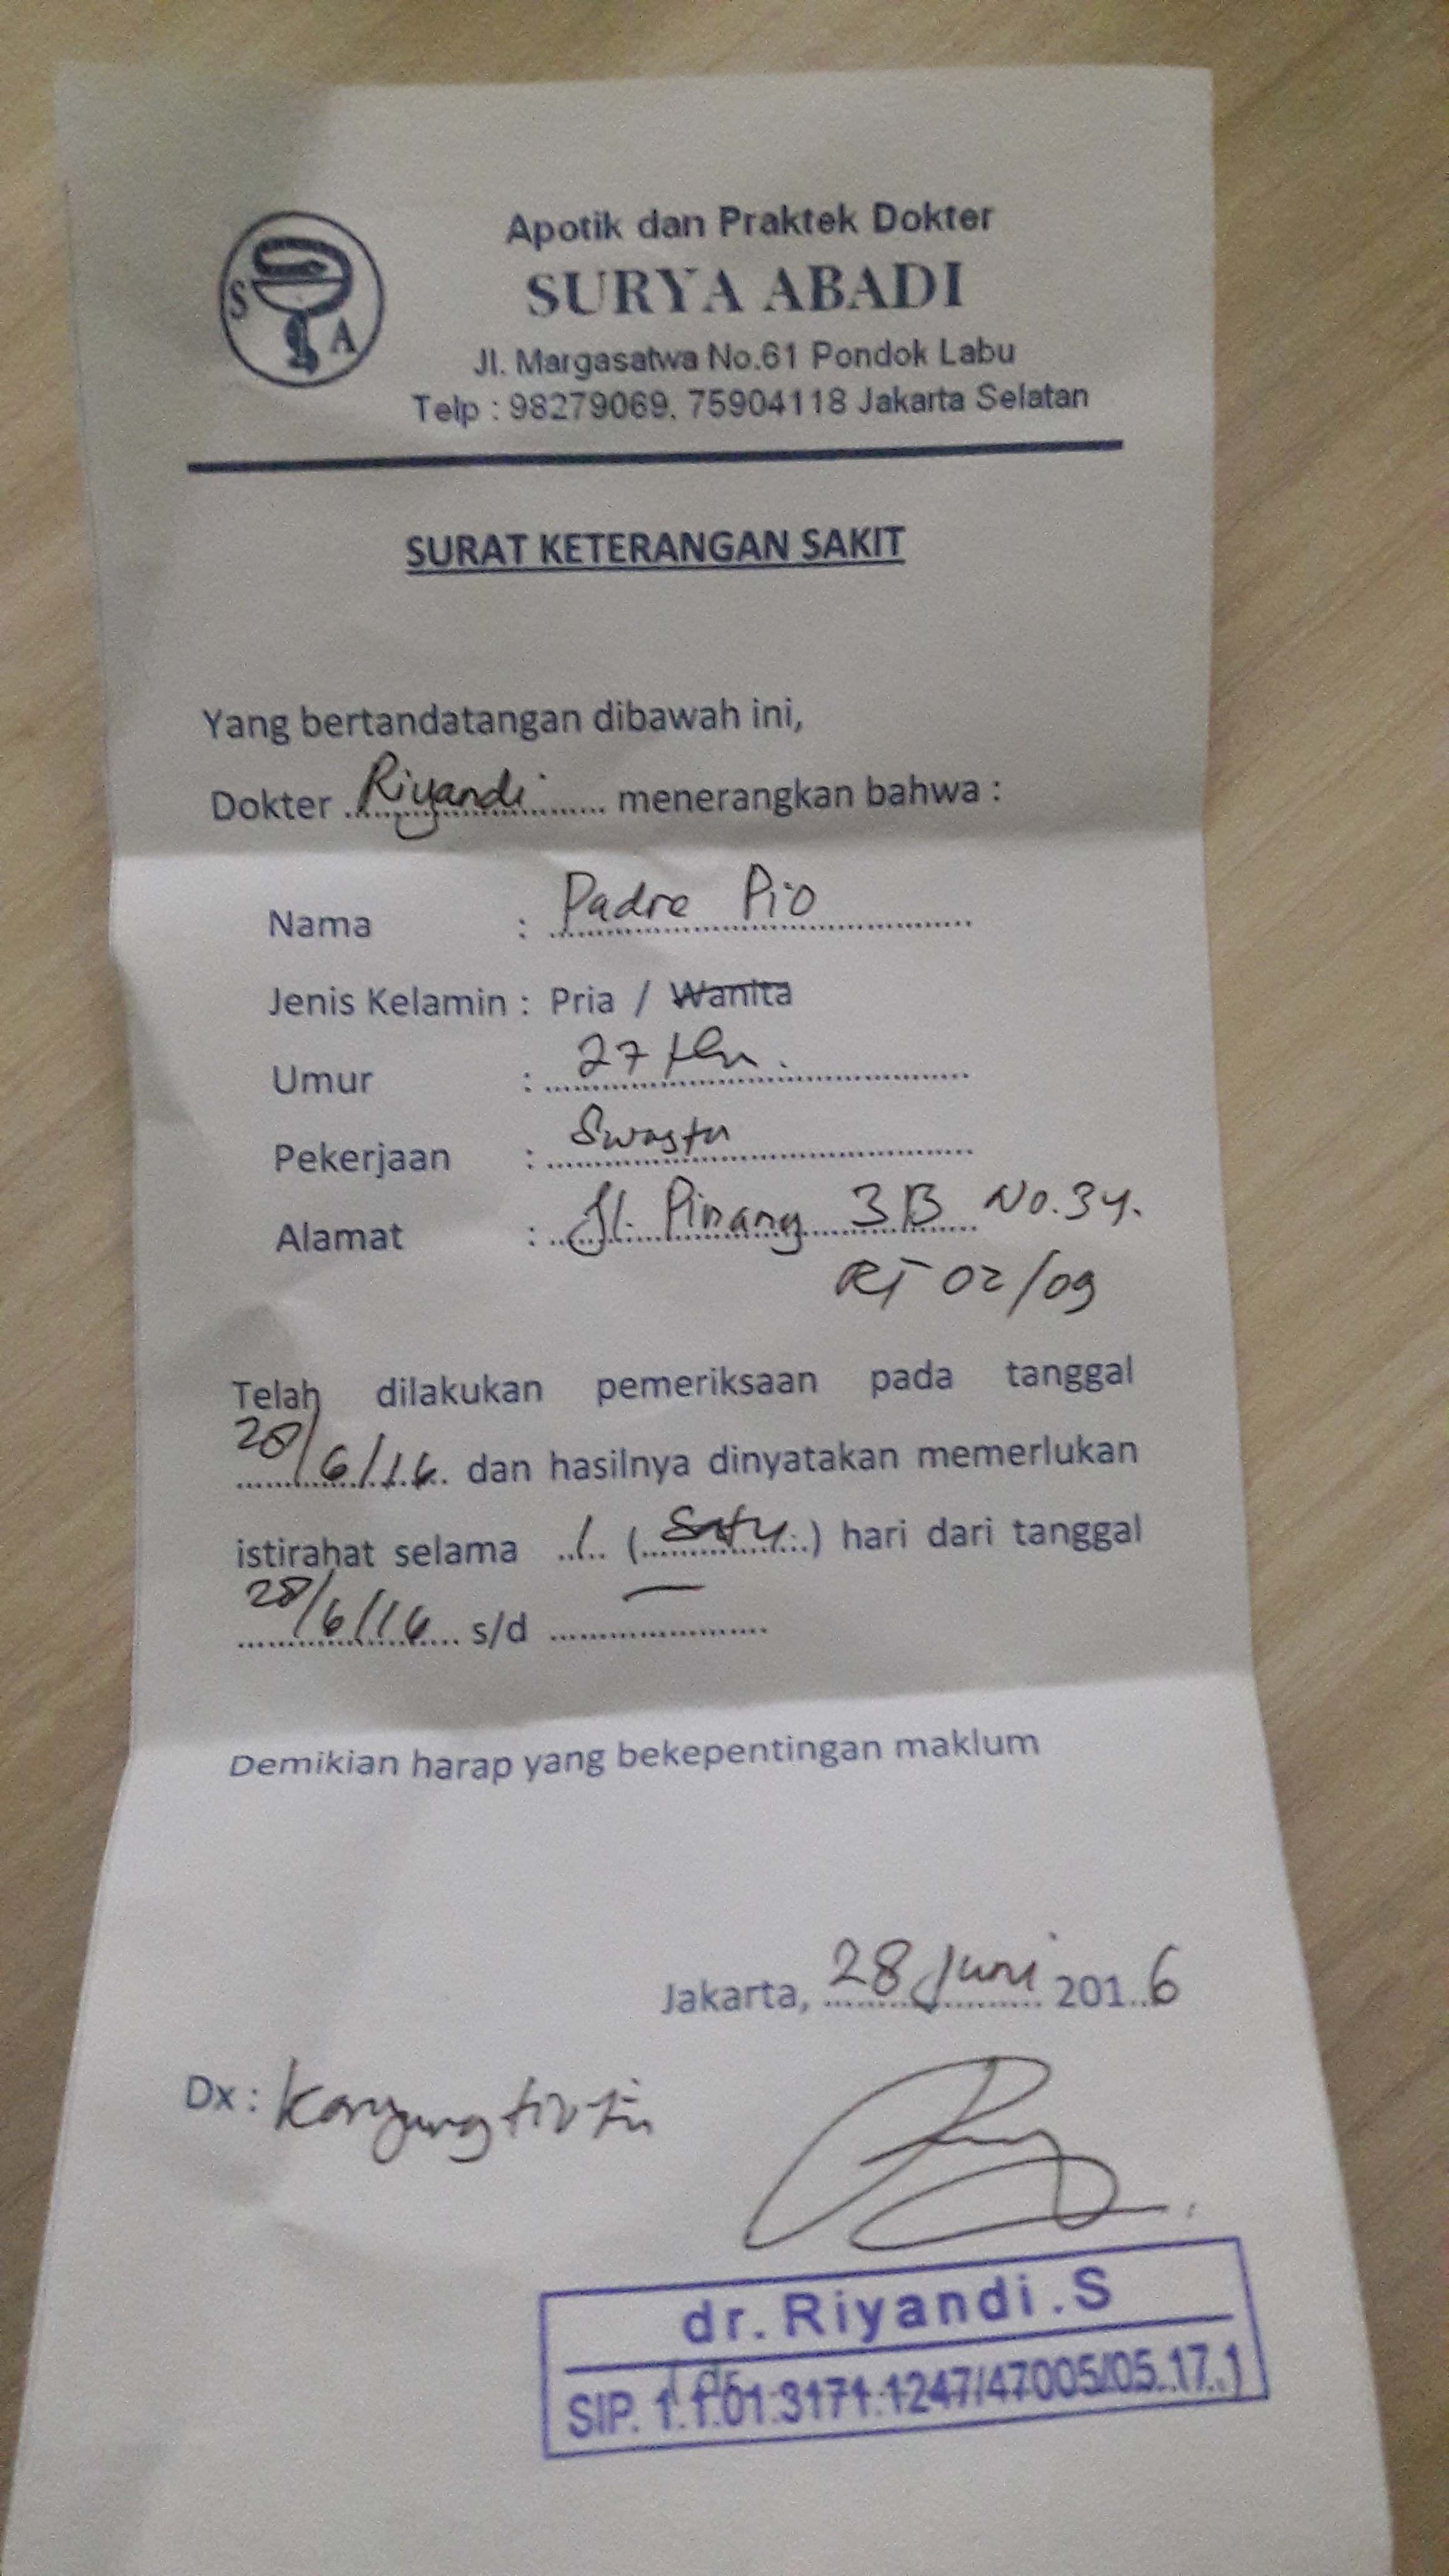 S A
Apotik dan Praktek Dokter
SURYA ABADI
Jl. Margasatwa No.61 Pondok Labu
Telp : 98279069, 75904118 Jakarta Selatan
SURAT KETERANGAN SAKIT
Yang bertandatangan dibawah ini,
Dokter Riyandi menerangkan bahwa :
Nama : Padre Pio
Jenis Kelamin : Pria / Wanita
Umur : 27 thn.
Pekerjaan : Swasta
Alamat : Jl. Pinang 3B No.34.
RT 02/09
Telah dilakukan pemeriksaan pada tanggal
28/6/16 dan hasilnya dinyatakan memerlukan
istirahat selama 1 (satu) hari dari tanggal
28/6/16 s/d —
Demikian harap yang bekepentingan maklum
Jakarta, 28 Juni 2016
Dx :
dr. Riyandi . S
SIP. 1.1.01.3171.1247/47005/05.17.1